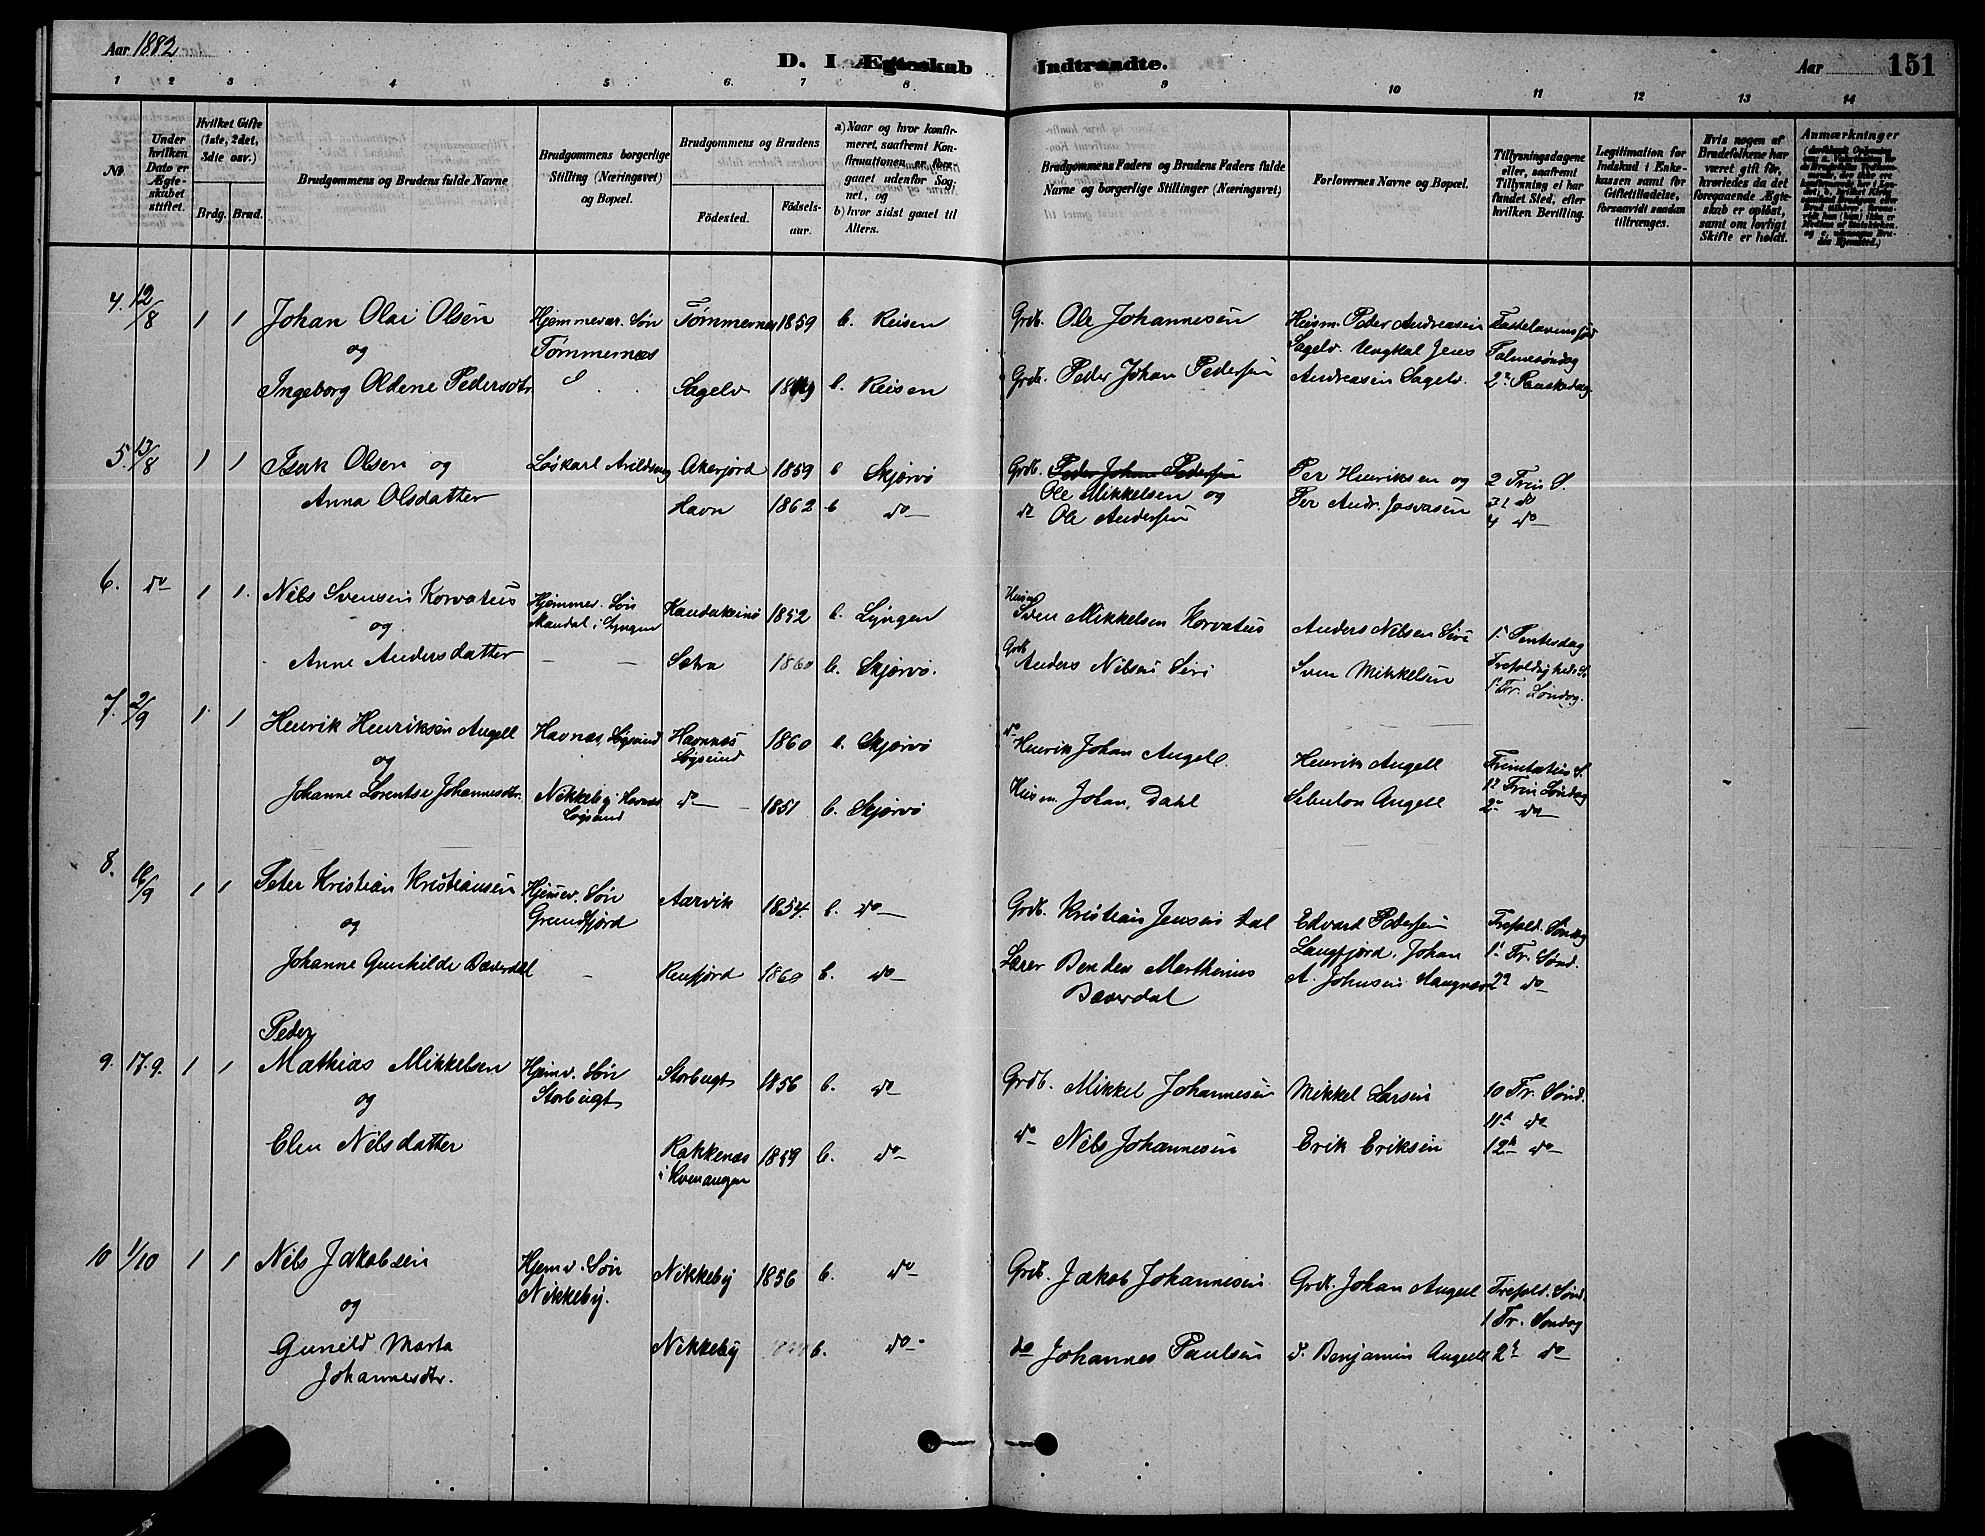 Aar 1882
D. I Ægteskab Indtraadte.
Aar 151
1 2 3 4 5 6 7 8 9 10 11 12 13 14
No.
Under hvilken Dato er Ægteskabet stiftet.
Hvilket Gifte (1ste, 2det, 3die osv.)
Brdg. Brud.
Brudgommens og Brudens fulde Navne
Brudgommens borgerlige Stilling (Næringsvei) og Bopæl.
Brudgommens og Brudens
Fødested.
Fødselsaar.
a) Naar og hvor konfirmeret, saafremt Konfirmationen er foregaaet udenfor Sognet, og
b) hvor sidst gaaet til Alters.
Brudgommens Faders og Brudens Faders fulde Navne og borgerlige Stillinger (Næringsvei)
Forlovernes Navne og Bopæl.
Tillysningsdagene eller, saafremt Tillysning ei har fundet Sted, efter hvilken Bevilling.
Legitimation for Indskud i Enkekassen samt for Giftetilladelse, forsaavidt saadan tiltrænges.
Hvis nogen af Brudefolkene har været gift før, hvorledes da det foregaaende Ægteskab er opløst, samt om lovligt Skifte er holdt.
Anmærkninger
4. 12/8 1 1 Johan Olai Olsen Hjemmevær. Søn Tømmernes 1859 b. Reisen Grdb. Ole Johannesen Huusm. Peder Andreasen Fastelavens
og Tømmernæs Sagelv. Ungkal Jens Palmesøndag
Ingeborg Oldene Pedersdtr Sagelv b. Reisen Grdb. Peder Johan Pedersen Andreasen Sagelv. 2n Paaskedag
5. 13/8 1 1 Isak Olsen og Løskarl Akerjord 1859 b Skjervö Grdb. Peder Johan Pedersen Per Henriksen og 2 Trin S.
Anna Olsdatter Havn 1862 b do Ole Mikkelsen og Per Andr. Josvasen 3 do
do Ole Andersen 4 do
6. do 1 1. Nils Svensen Korvatus Hjemmev. Søn Kautokeino 1852 b. Lyngen Huusm Sven Mikkelsen Korvatus Anders Nilsen Siri 1 Pintsedag
og Mandal i Lyngen
Anne Andersdatter — — Sætra 1860 b. Skjervø. Grdb Anders Nilsen Siri Sven Mikkelsen Trefoldigheds S
1 Tr. Søndag.
7. 2/9 1 1 Henrik Henriksen Angell Havnæs, Løgsund Havnnæs Løgsund 1860 b. Skjervø do Henrik Johan Angell. Henrik Angell Trinitatis S.
og
Johanne Lorentse Johannesdtr. Nikkeby Havnæs Løgsund do 1851 b. Skjervø Huusm. Johan Dahl Sebulon Angell 1n Trin Søndag
2n do
8. 16/9 1 1 Peter Kristian Kristiansen Hjemev. Søn Aarvik 1854. b. do Grdb. Kristian Jensen Dal Edvard Pedersen Trefold. Søndag
og Grundfjord Langfjord, Johan 1 Tr. Sønd.
Johanne Gunhilde Bæverdal — Reinfjord 1860 b. do Lærer Bendex Marthinus Bæverdal A. Johnsen 2n do
9. 17.9. 1 1 Peder Mathias Mikkelsen Hjemv. Søn Storbugt 1856 b. do Grdb. Mikkel Johannesen Mikkel Larsen 10 Tr. Sønd.
og Storbugt 11n do
Elen Nilsdatter Rakkenæs i Kvenangen 1859 b. do do Nils Johannesen Erik Eriksen 12n do
10 1/10 1 1 Nils Jakobsen Hjemv. Søn Nikkeby 1856 b. do Grdb. Jakob Johannesen Grdb. Johan Angell Trefold. Sønd.
og Nikkeby. 1 Tr. Søndag
Gunild Marta Johannesdtr. Nikkeby b. do do Johannes Paulsen d. Benjamin Angell 2n do